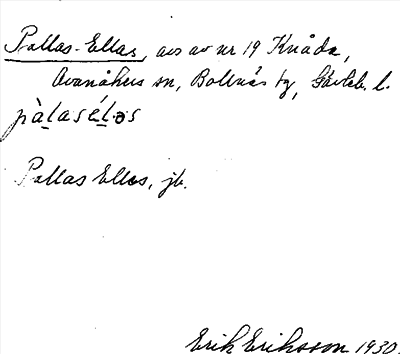 Pallas-Ellas, avs av nr 19 Knåda,
Ovanåkers sn, Bollnäs tg, Gävleb. l.
pàlasélǝs
Pallas Ellas, jb.
Erik Eriksson 1930.